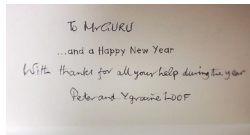 To Mr GURU
...and a Happy New Year
With thanks for all your help during the year
Peter and Ygraine LOOF